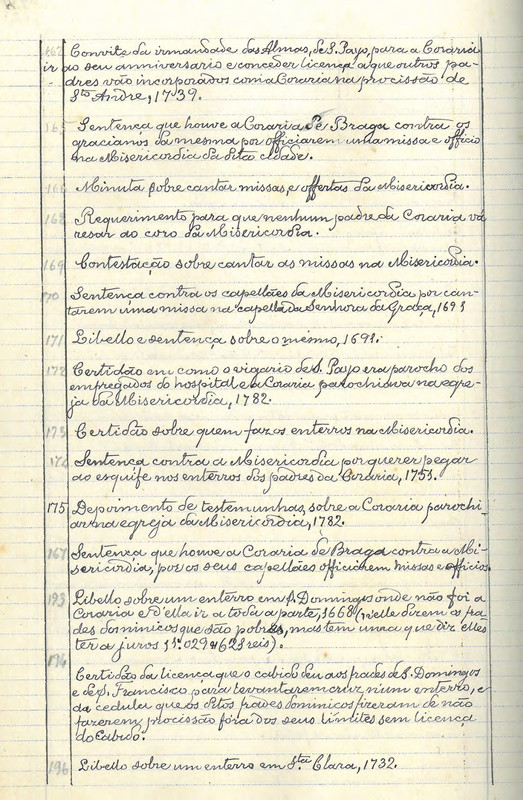 162 Convite da irmandade das Almas, de S. Payo, para a Coraria
ir ao seu anniversario e conceder licença a que outros pa-
dres vão incorporados com a Coraria na procissão de
Sto André, 1739.
165 Sentença que houve a Coraria Sé Braga contra os
gracianos da mesma por officiarem uma missa e officio
na Misericordia da dita cidade.
166 Minuta sobre cantar missas, e offertas da Misericordia.
168 Requerimento para que nenhum padre da Coraria vá
resar ao coro da Misericordia.
169 Contestação sobre cantar as missas na Misericordia.
170 Sentença contra os capellães da Misericordia por can-
tarem uma missa na capella da Senhora da Graça, 1691
171 Libello e sentença sobre o mesmo, 1691.
172 Certidão em como o vigario de S. Payo era parocho dos
empregados do hospital e a Coraria parochiava na egre-
ja da Misericordia, 1782.
173 Certidão sobre quem faz os enterros na Misericordia.
174 Sentença contra a Misericordia por querer pegar
ao esquife nos enterros dos padres da Coraria, 1751.
175 Depoimento de testemunhas, sobre a Coraria parochi-
ar na egreja da Misericordia, 1782.
167 Sentença que houve a Coraria de Braga contra a Mi-
sericordia, por os seus capellães officiarem missas e officios.
193 Libello sobre um enterro em S. Domingos onde não foi a
Coraria e d'ella ir a toda a parte, 1668 (N'elle dizem os fra-
des dominicos que são pobres, mas tem uma que diz elles
ter a juros 11:029$628 reis).
194
Certidão da licença que o cabido deu aos frades de S. Domingos
e de S. Francisco para levantarem cruz n'um enterro, e
da cedula que os ditos frades dominicos fizeram de não
fazerem procissão fóra dos seus limites sem licença
do Cabido.
196 Libello sobre um enterro em Sta Clara, 1732.